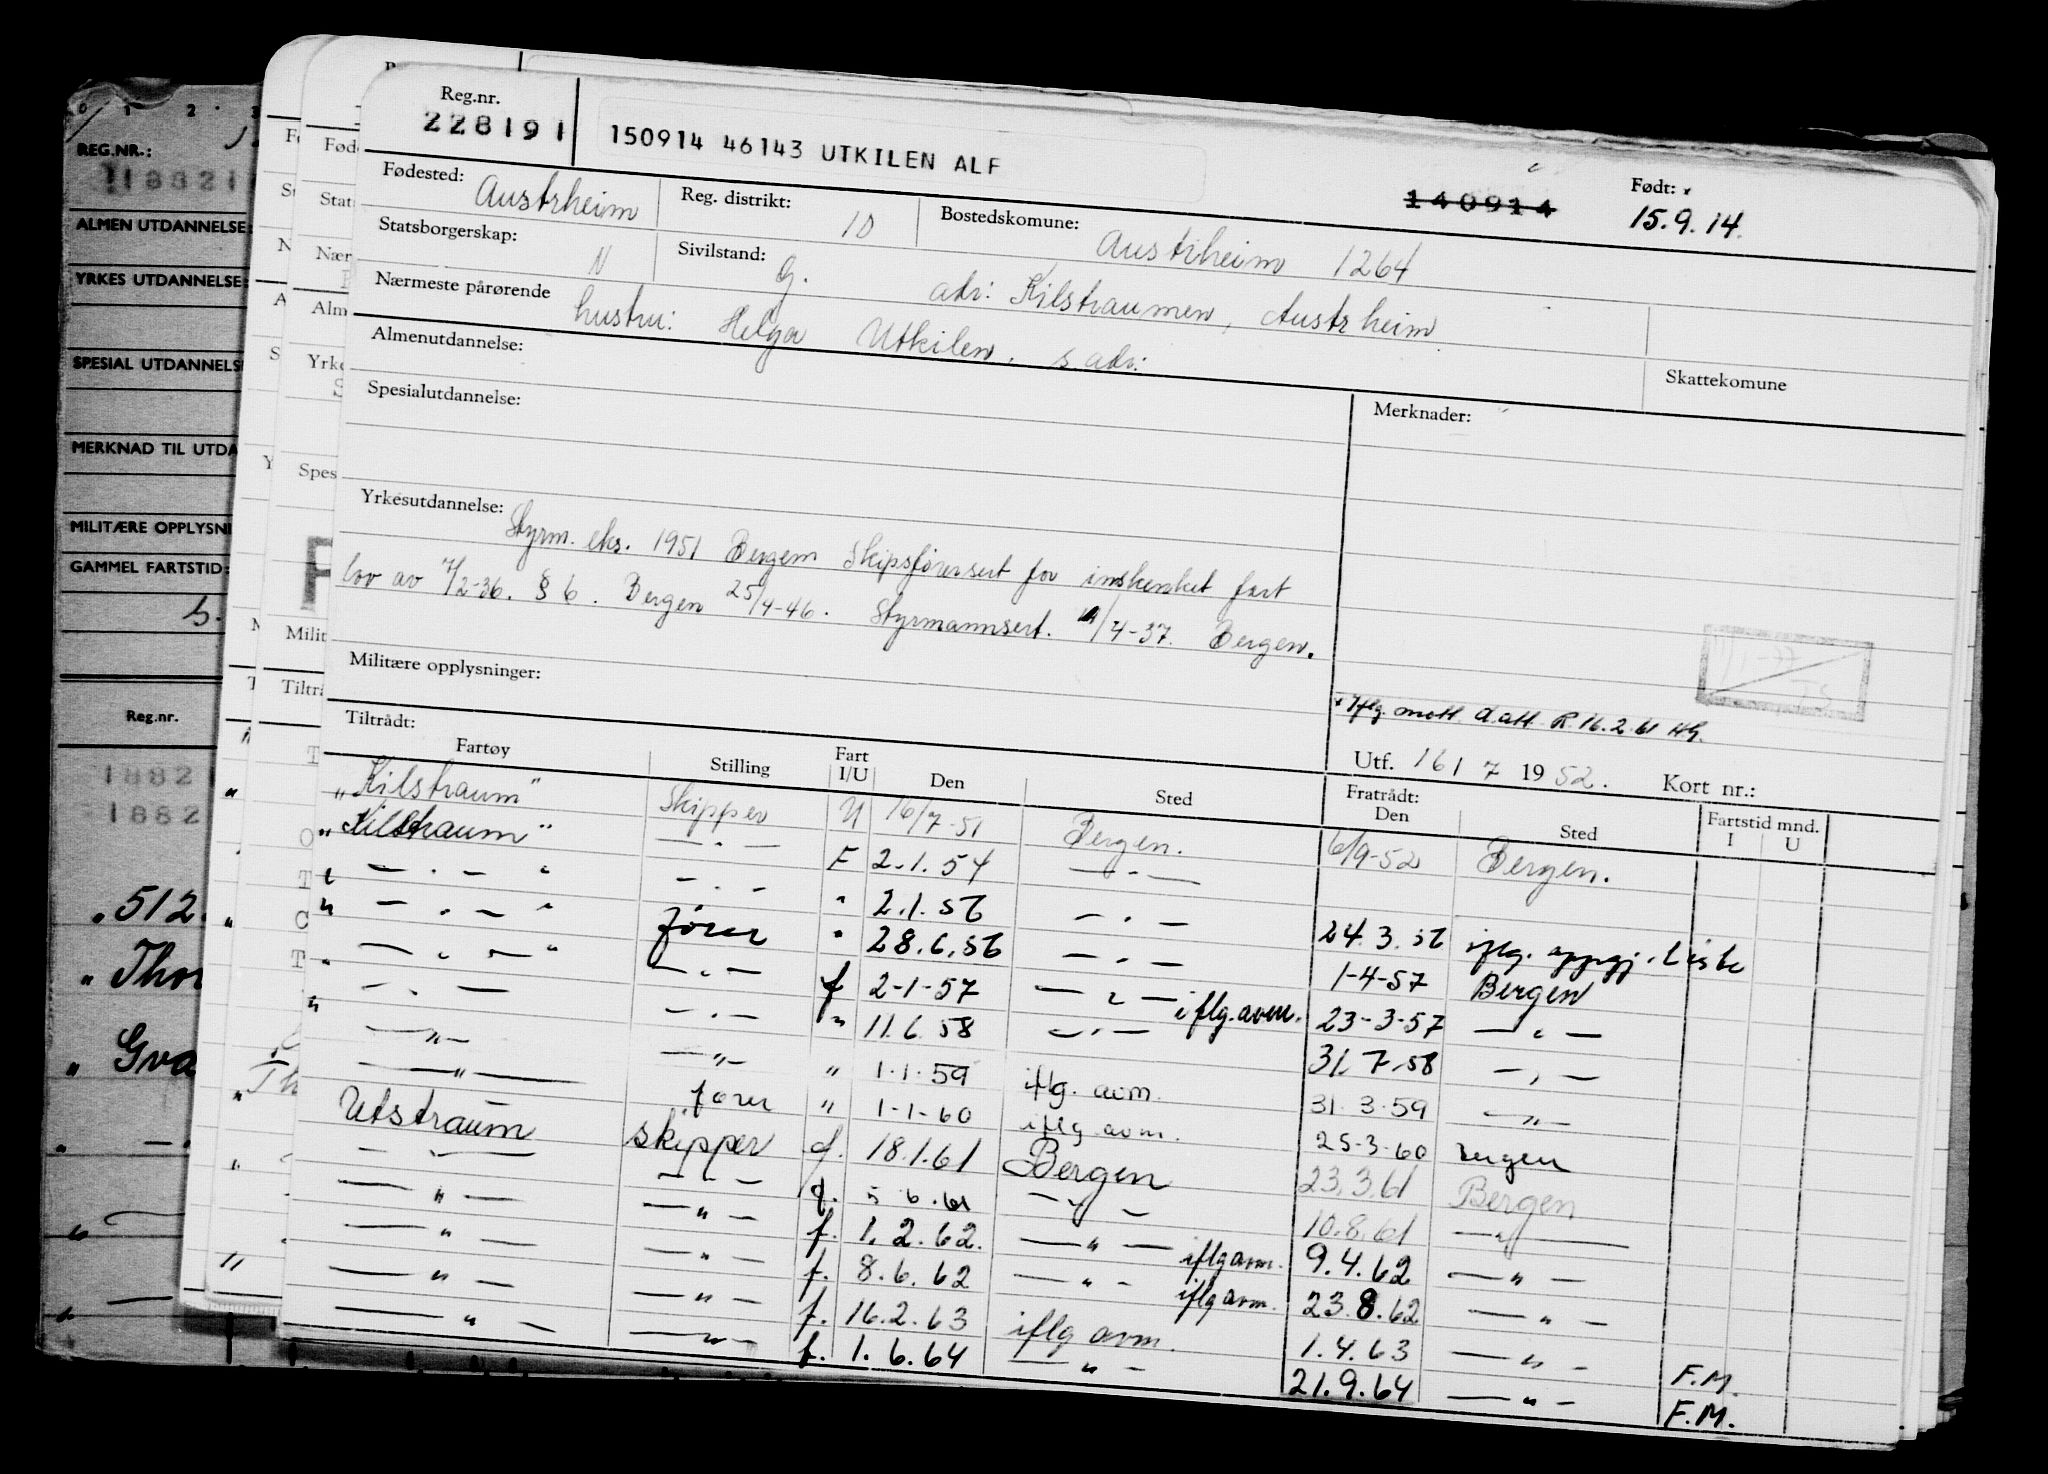 Reg.nr.
228191
150914 46143 UTKILEN ALF
Fødested: Austrheim
Reg. distrikt: 10
Bostedskomune: Austrheim 1264
140914
Født:
15.9.14.
Statsborgerskap: N
Sivilstand: G.
adr: Kilstraumen, Austrheim
Nærmeste pårørende
hustru: Helga Utkilen, s. adr.
Skattekomune
Almenutdannelse:
Spesialutdannelse:
Merknader:
Yrkesutdannelse: Styrm. eks. 1951 Bergen Skipsførersert for innskrenket fart
lov av 7/2-36. § 6. Bergen 25/4-46. Styrmannsert. /4-37. Bergen.
Militære opplysninger:
Iflg. mott. d.att. R. 16.2.61 HG.
Utf. 16/ 7 1952. Kort nr.:
Tiltrådt:
Fartøy Stilling Fart I/U Den Sted Fratrådt: Den Sted Fartstid mnd. I U
"Kilstraum" Skipper U 16/7-51 Bergen. 6/9-52 Bergen.
"Kilstraum" — " — F 2.1.54 — " —
" — " — " — " — " 2.1.56 — " — 24.3.56 iflg. oppgj. liste
" — " — " fører " 28.6.56 — " — 1-4-57 Bergen
" — " — " — " — f 2-1-57 — " — iflg. avm. 23-3-57 — " —
" — " — — " — " 11.6.58 — " — 31.7.58 — " —
— " — — " — " 1.1.59 iflg. avm. 31.3.59 — " —
— " — fører " 1-1-60 iflg. avm. 25-3-60 Bergen
Utstraum skipper f. 18.1.61 Bergen 23.3.61 Bergen
— " — — " — f. 5.6.61 — " — 10.8.61 — " —
— " — — " — f. 1.2.62. — " — iflg avm. 9.4.62 — " —
— " — — " — f. 8.6.62 — " — iflg avm. 23.8.62 — " —
— " — — " — f. 16.2.63 iflg avm. 1.4.63 — " — F.M.
— " — — " — f. 1.6.64 — " — 21.9.64 — " — F.M.
0 1 2 3
REG.NR.:
ALMEN UTDANNELSE:
YRKES UTDANNELSE:
SPESIAL UTDANNELSE
MERKNAD TIL UTDA
MILITÆRE OPPLYSNI
GAMMEL FARTSTID:
Reg.nr.
1882
1882
512.
"Thor
"Gva